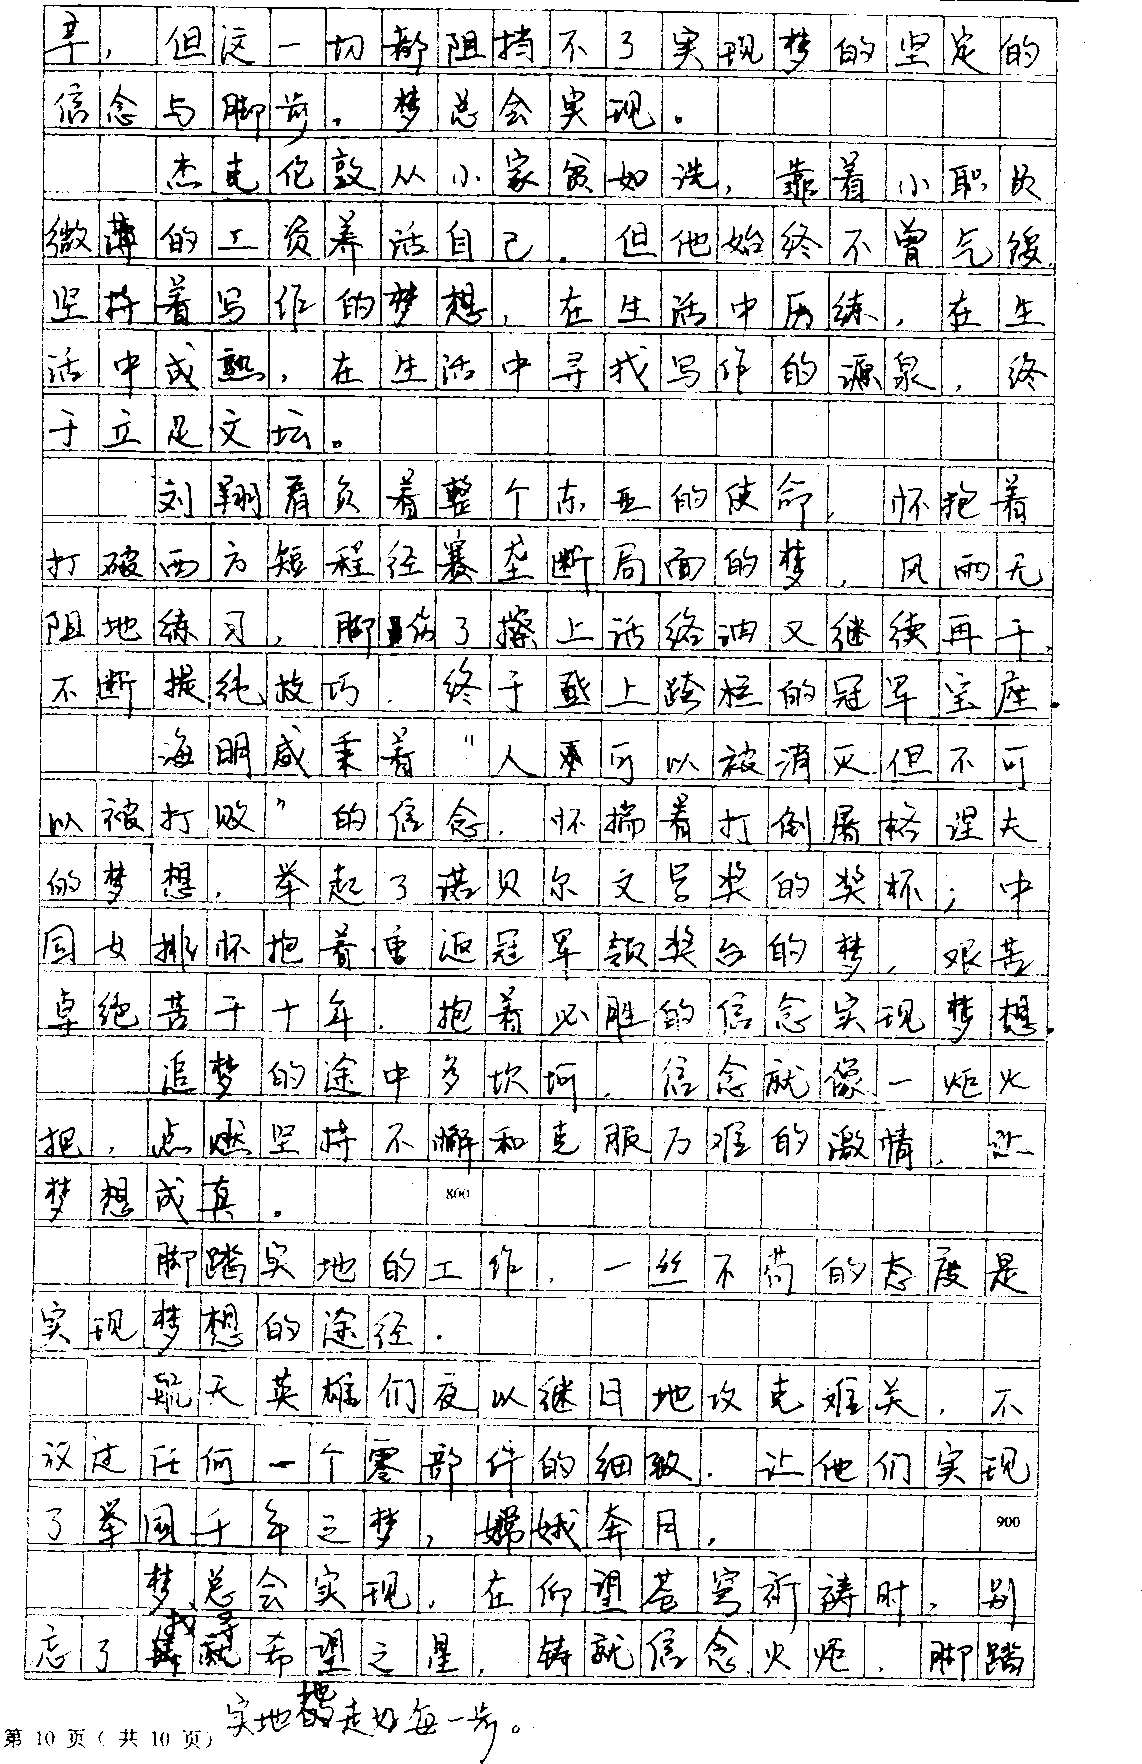 辛，但这一切都阻挡不了实现梦的坚定的
信念与脚步。梦总会实现。
杰克伦敦从小家贫如洗，靠着小职员
微薄的工资养活自己。但他始终不曾气馁，
坚持着写作的梦想，在生活中历练，在生
活中成熟，在生活中寻找写作的源泉，终
于立足文坛。
刘翔肩负着整个东亚的使命，怀抱着
打破西方短程径赛垄断局面的梦，风雨无
阻地练习，脚伤了擦上活络油又继续再干，
不断提纯技巧，终于登上跨栏的冠军宝座。
海明威秉着“人可以被消灭但不可
以被打败”的信念，怀揣着打倒屠格涅夫
的梦想，举起了诺贝尔文学奖的奖杯；中
国女排怀抱着重返冠军领奖台的梦，艰苦
卓绝苦干十年，抱着必胜的信念实现梦想。
追梦的途中多坎坷，信念就像一炬火
把，点燃坚持不懈和克服万难的激情，让
梦想成真。
800
脚踏实地的工作，一丝不苟的态度是
实现梦想的途径。
航天英雄们夜以继日地攻克难关，不
放过任何一个零部件的细致，让他们实现
了举国千年之梦，嫦娥奔月。
900
梦总会实现，在仰望苍穹祈祷时，别
忘了找寻希望之星，铸就信念火炬，脚踏
实地地走好每一步。
第 10 页（共 10 页）